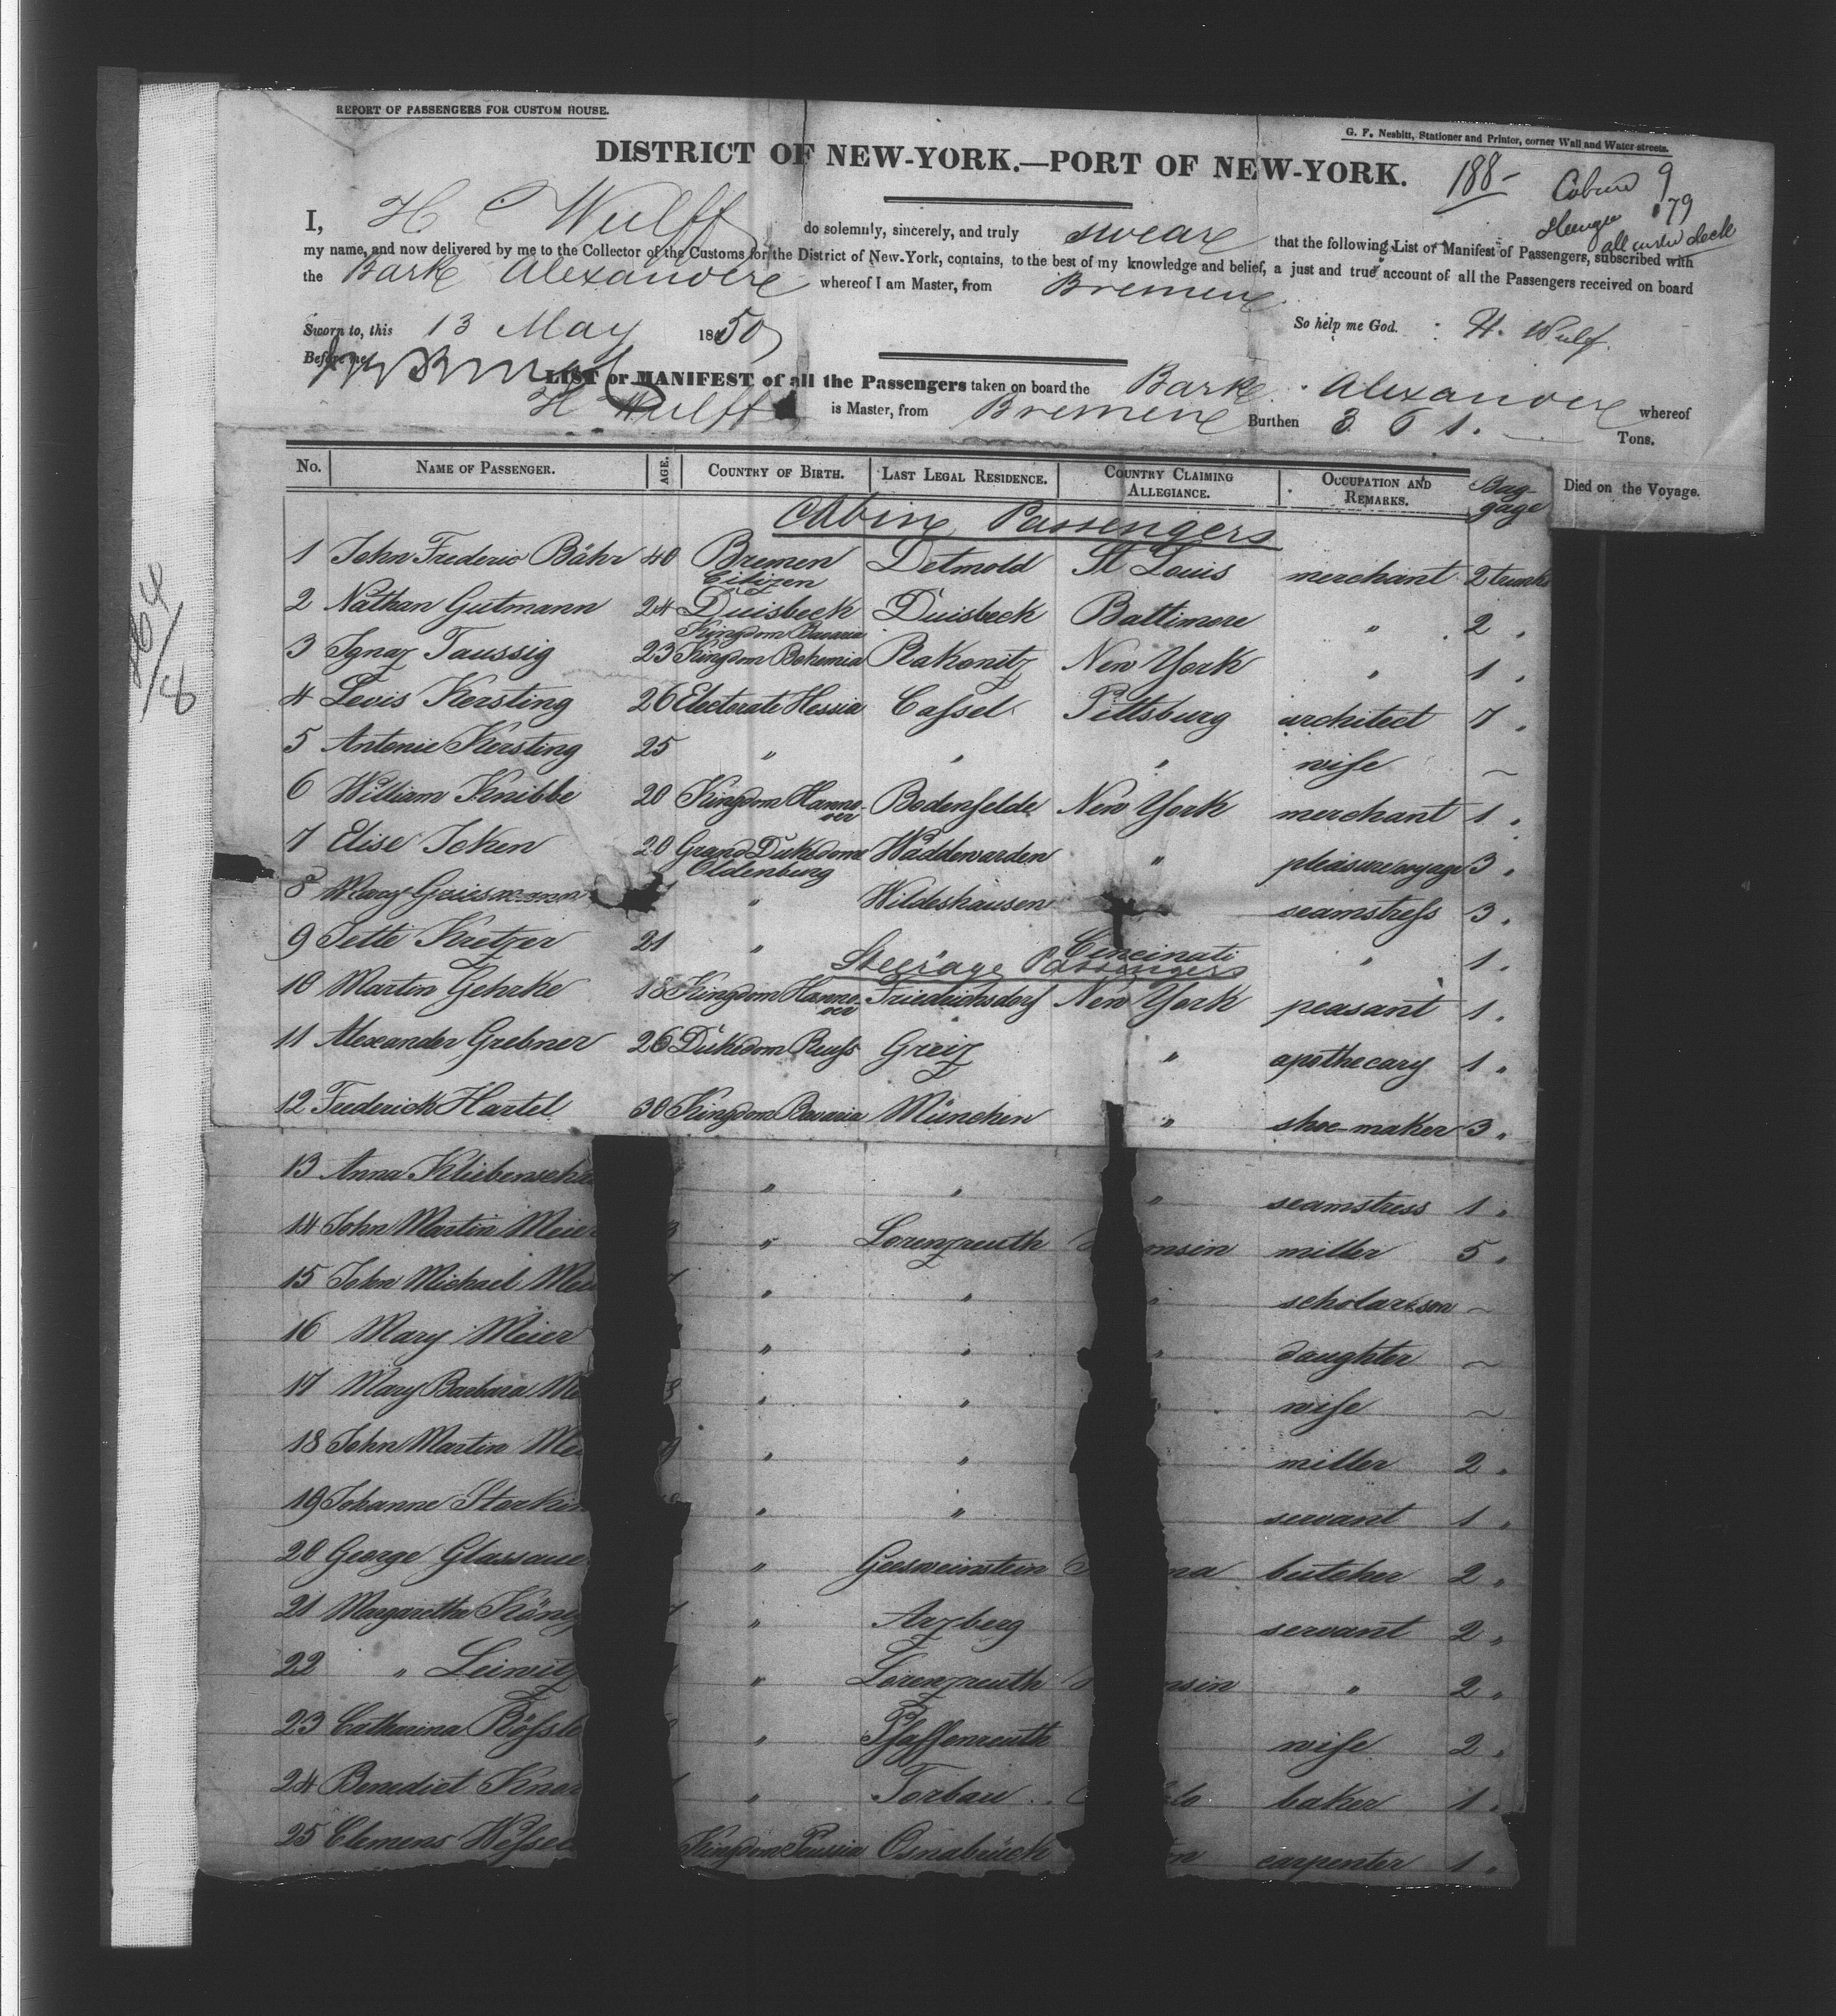 REPORT OF PASSENGERS FOR CUSTOM HOUSE.
G. F. Nesbitt, Stationer and Printer, corner Wall and Water-streets.
DISTRICT OF NEW-YORK.—PORT OF NEW-YORK.
188-
9
179
all under deck
I, H C Wulff do solemnly, sincerely, and truly sweare that the following List or Manifest of Passengers, subscribed with
my name, and now delivered by me to the Collector of the Customs for the District of New-York, contains, to the best of my knowledge and belief, a just and true account of all the Passengers received on board
the Bark Alexandere whereof I am Master, from Bremene
Sworn to, this 13 May 1850 So help me God. H. Wulf.
Before me
LIST or MANIFEST of all the Passengers taken on board the Bark Alexandere whereof
H Wulff is Master, from Bremene Burthen 361. Tons.
No. NAME OF PASSENGER. AGE. COUNTRY OF BIRTH. LAST LEGAL RESIDENCE. COUNTRY CLAIMING ALLEGIANCE. OCCUPATION AND REMARKS. Bag-gage Died on the Voyage.
Cabine Passengers
1 John Frederic Bähr 40 Bremen Citizen Detmold St Louis merchant 2 trunks
2 Nathan Gutmann 24 Duisbeck Kingdom Bavaria Duisbeck Baltimore " 2 "
3 Ignaz Taussig 23 Kingdom Bohemia Rakonitz New York " 1 "
4 Levis Kersting 26 Electorate Hessia Cassel Pittsburg architect 7 "
5 Antonie Kersting 25 " " " wife ~
6 William Knibbe 20 Kingdom Hanno-ver Bodenfelde New York merchant 1 "
7 Elise Icken 20 Grand Dukedome Oldenburg Waddewarden " pleasurevoyage 3 "
8 Mary Griesmann " Wildeshausen seamstress 3 "
9 Jette Kretzer 21 " Cincinati " 1 "
Steerage Passengers
10 Martin Gehrke 18 Kingdom Hanno-ver Friedrichsdorf New York peasant 1 "
11 Alexander Grebner 26 Dukedom Reuss Greiz " apothecary 1 "
12 Frederick Hartel 30 Kingdom Bavaria München " shoe-maker 3 "
13 Anna Kliebensch " " " seamstress 1 "
14 John Martin Meier 3 " Lorenzreuth nsin miller 5 "
15 John Michael Mei " " " scholar & son ~
16 Mary Meier " " " daughter ~
17 Mary Barbara Me 8 " " wife ~
18 John Martin Me 9 " " miller 2 "
19 Johanne Storkin " " servant 1 "
20 George Glassaue " Geesweinstein na butcher 2 "
21 Margaretha König " Arzberg servant 2 "
22 " Leiwitz " Lorenzreuth nsin " 2 "
23 Catharina Bössle " Pfaffenreuth wife 2 "
24 Benedict Knor " Torbau lo baker 1 "
25 Clemens Wesse Kingdom Prussia Osnabrück on carpenter 1 "
8